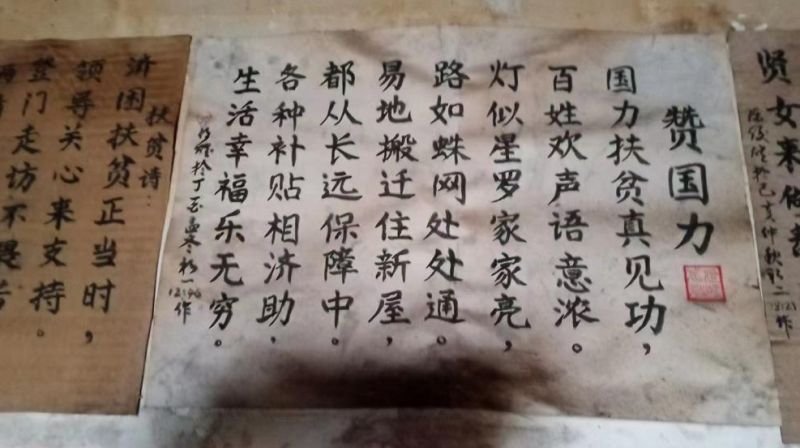 贤女来
二
作
赞国力
国力扶贫真见功，
百姓欢声语意浓。
灯似星罗家家亮，
路如蛛网处处通。
易地搬迁住新屋，
都从长远保障中。
各种补贴相济助，
生活幸福乐无穷。
作
扶贫诗：
济困扶贫正当时，
领导关心来支持。
登门走访不